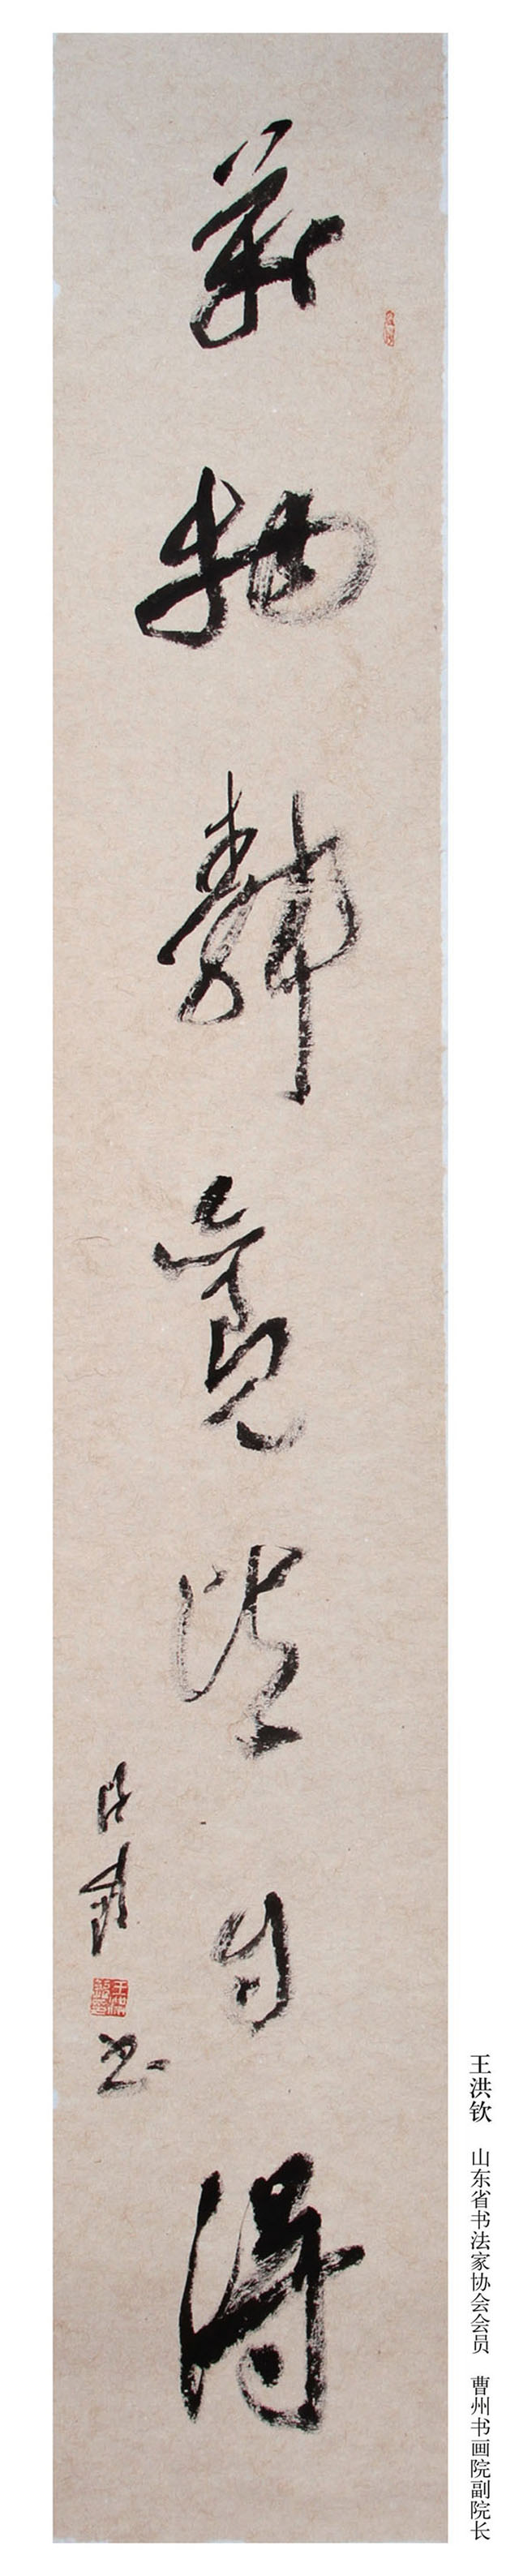 萬物静觀皆自得
洪欽
書
王洪钦 山东省书法家协会会员 曹州书画院副院长